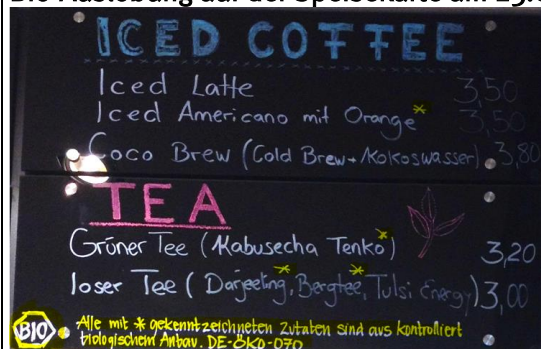 ICED COFFEE
Iced Latte 3,50
Iced Americano mit Orange* 3,50
Coco Brew (Cold Brew+Kokoswasser) 3,80
TEA
Grüner Tee (Kabusecha Tenko*) 3,20
loser Tee (Darjeeling*, Bergtee*, Tulsi Energy) 3,00
BIO Alle mit * gekenntzeichneten Zutaten sind aus kontrolliert
biologischem Anbau. DE-ÖKO-070